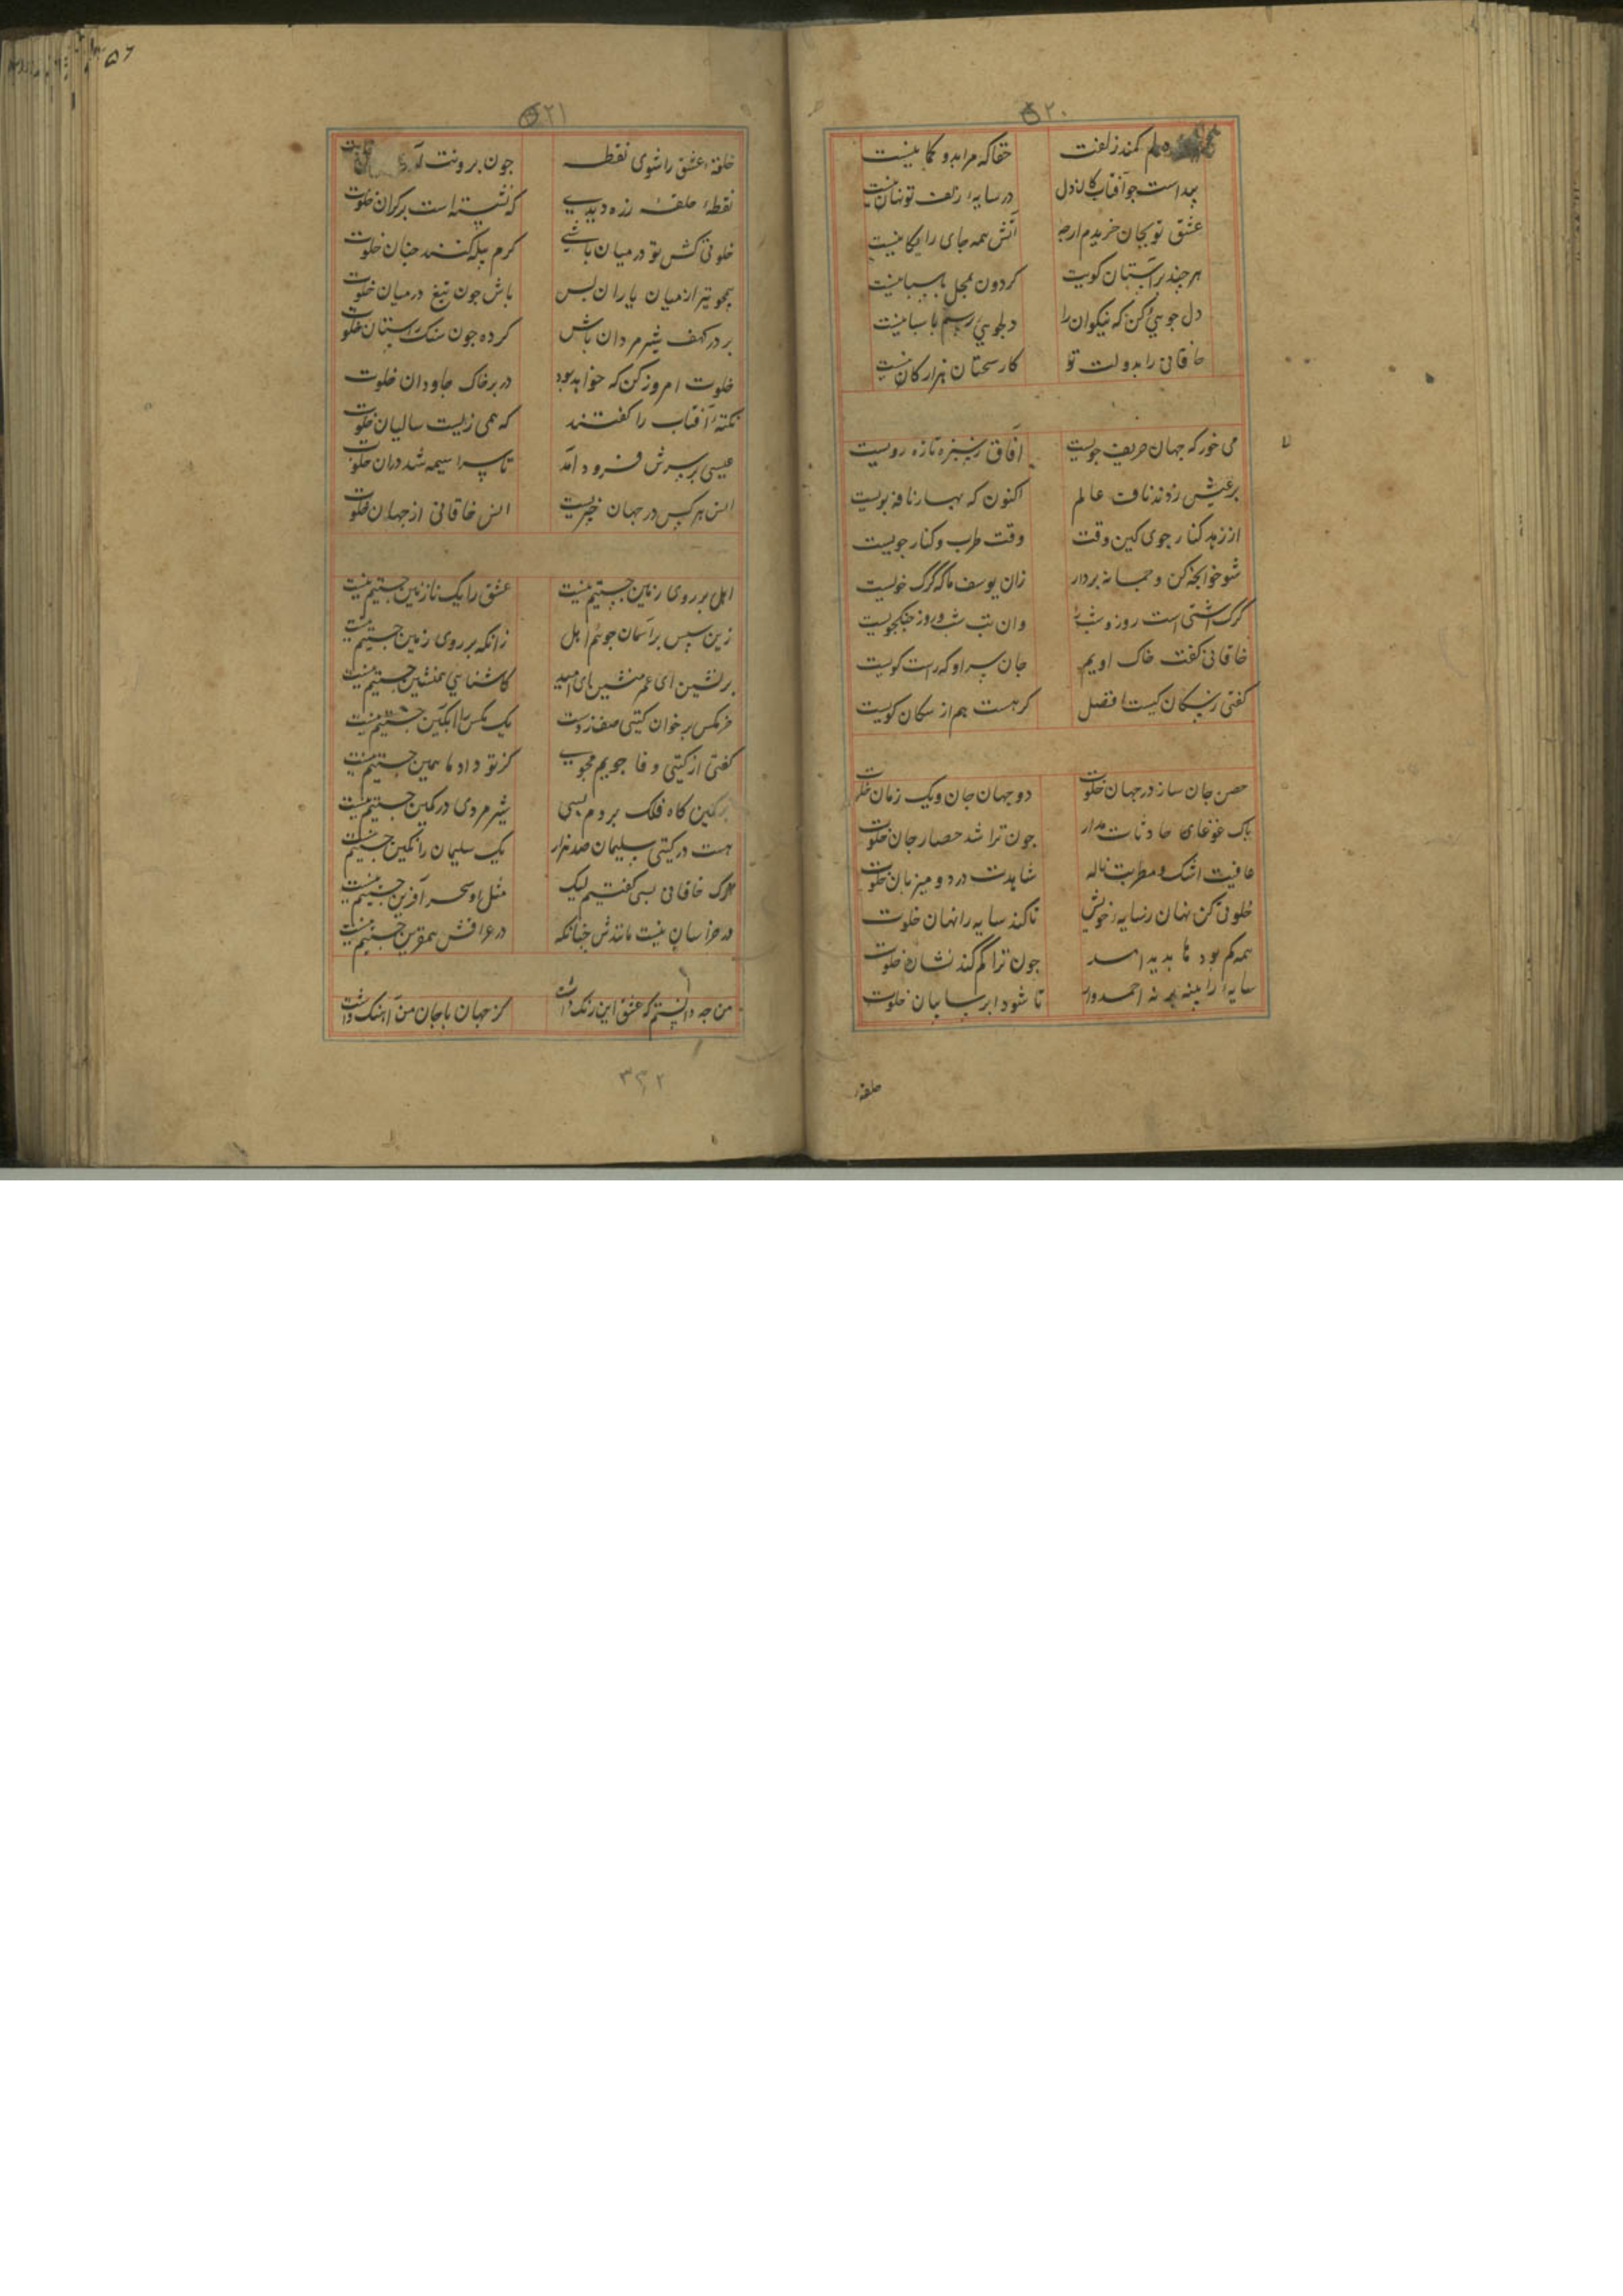 ۲۰
دلم کمند زلفت حقا که مرا بدو کمانیست
پیداست جو آفتاب کان دل در سایهٔ زلف تو نهانیست
عشق تو بجان خریدم ارچه آتش همه جای رایکانیست
هر جند بر آستان کویت کردون بمحل باسبانیست
دل جوهیی کن که نیکوان را دلجوئی رسم باسبانیست
خاقانی را بدولت تو کار سخنان هزارکانیست
می خور که جهان حریف جویست آفاق ز سبزه تازه رویست
بر عیش زدند ناف عالم اکنون که بهار نافه بویست
از زهد کنار جوی کین وقت وقت طرب و کنار جویست
شو خوانجه کن و جمانه بردار زان یوسف ما که کرک خویست
کرک آشتی است روز و شب را وان تب شب و روز جنکجویست
خاقانی کفت خاک اویم جان و سر او که راست کویست
کفتی ز سکان کیست افضل کر هست هم از سکان کویست
حصن جان ساز در جهان خلوت دو جهان جان و یک زمان خلوت
باک غوغای حادثات مدار جون ترا شد حصار جان خلوت
عافیت اشک و مطربت ناله شاهدت درد و میزبان خلوت
خلوتی کن نهان ز سایه خویش تا کند سایه را نهان خلوت
همه کم بود تا بدید آمد جون ترا کم کند نشان خلوت
سایه را بنبه برنه احمدوار تا شود ابر سایبان خلوت
حلقهٔ
۲۱
حلقهٔ عشق را شوی نقطه جون برونت
نقطهٔ حلقهٔ زره دیدی که نشسته است بر کران خلوت
خلوتی کش تو در میان باشی کرم بیله کنند جنان خلوت
همجو تیر از میان یاران بس باش جون تیغ در میان خلوت
بر در کهف شیر مردان باش کرده جون سک بر آستان خلوت
خلوت امروز کن که خواهد بود در بر خاک جاودان خلوت
نکتهٔ آفتاب را کفتند که همی زیست سالیان خلوت
عیسی بر سرش فرود آمد تا سراسیمه شد دران خلوت
انس هر کس در جهان خیریست انس خاقانی از جهان خلوت
اهل بر روی زمین جستیم نیست عشق را یک نازنین جستیم نیست
زین سبس بر آسمان جوئیم اهل زانکه بر روی زمین جستیم نیست
برنشین ای عمر منشین ای امید کاشنایی همنشین جستیم نیست
خرمکس بر خوان کیتی صف زدست یک مکس را انکبین جستیم نیست
کفتی از کیتی وفا جویم مجوی کز تو داد ما همین جستیم نیست
بر کمین کاه فلک بردم بسی شیر مردی در کمین جستیم نیست
هست در کیتی سلیمان صد هزار یک سلیمان را نکین جستیم نیست
ترک خاقانی بسی کفتیم لیک مثل او سحر آفرین جستیم نیست
در خراسان نیست مانندش جنانکه در عراقش همقرین جستیم نیست
من جه دانستم که عشق این رنک داشت کز جهان با جان من آهنک داشت
۳۳۲